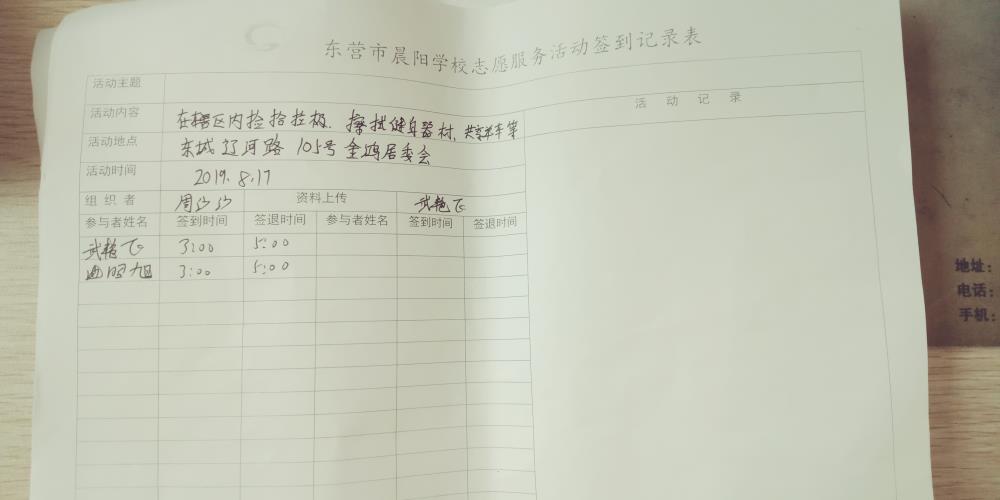 东营市晨阳学校志愿服务活动签到记录表
活动主题
活动内容 在辖区内捡拾垃圾、擦拭健身器材、共享单车等
活动地点 东城辽河路105号金鸡居委会
活动时间 2019.8.17
组织者 周沙沙 资料上传 武艳飞
参与者姓名 签到时间 签退时间 参与者姓名 签到时间 签退时间
武艳飞 3:00 5:00
3:00 5:00
活动记录
地址:
电话:
手机: